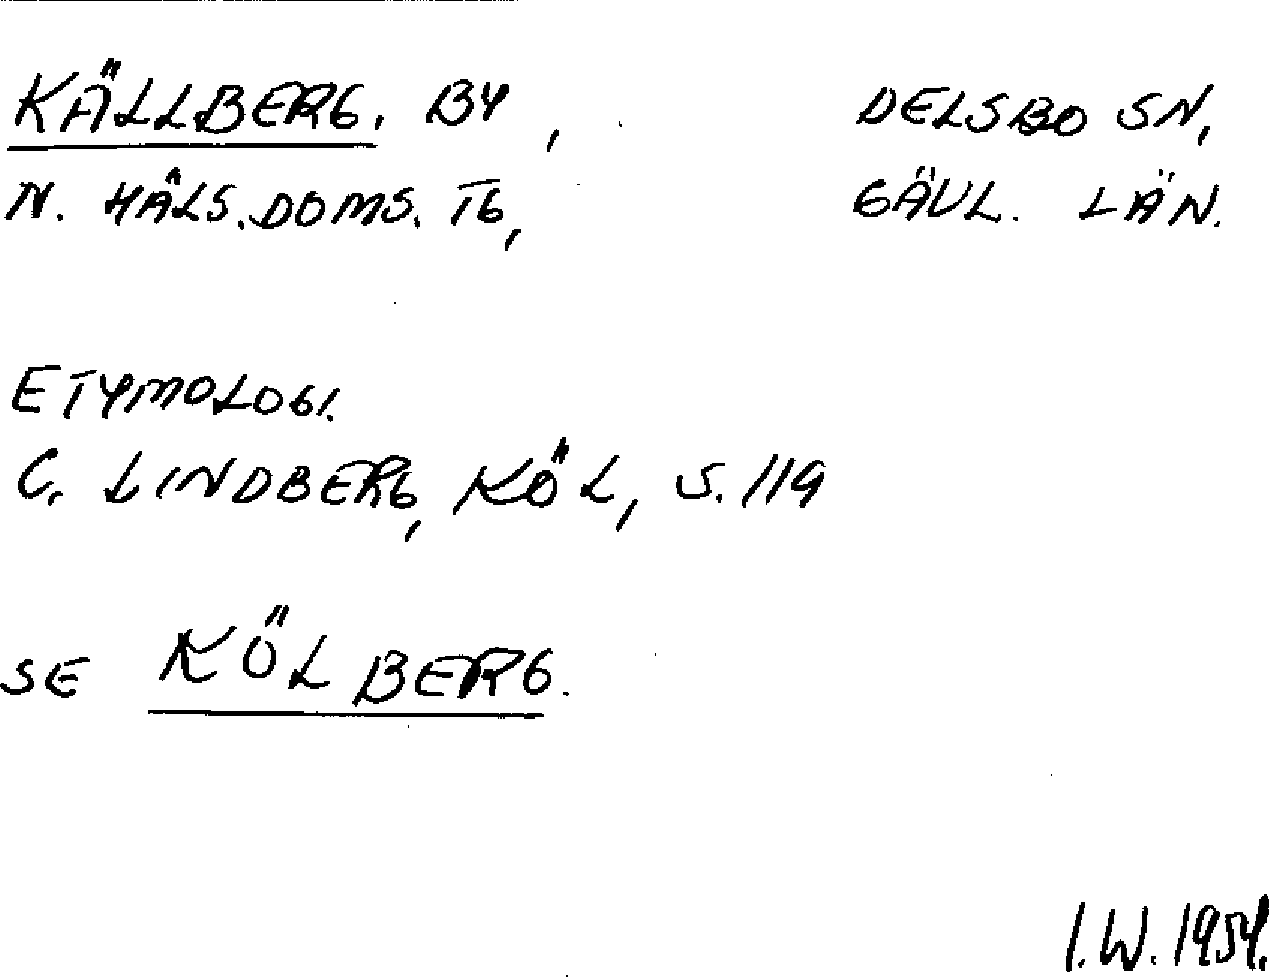 KÄLLBERG. BY, DELSBO SN,
N. HÄLS. DOMS. TG, GÄVL. LÄN.
ETYMOLOGI.
C. LINDBERG, KÖL, S. 119
SE KÖLBERG.
I.W. 1954.